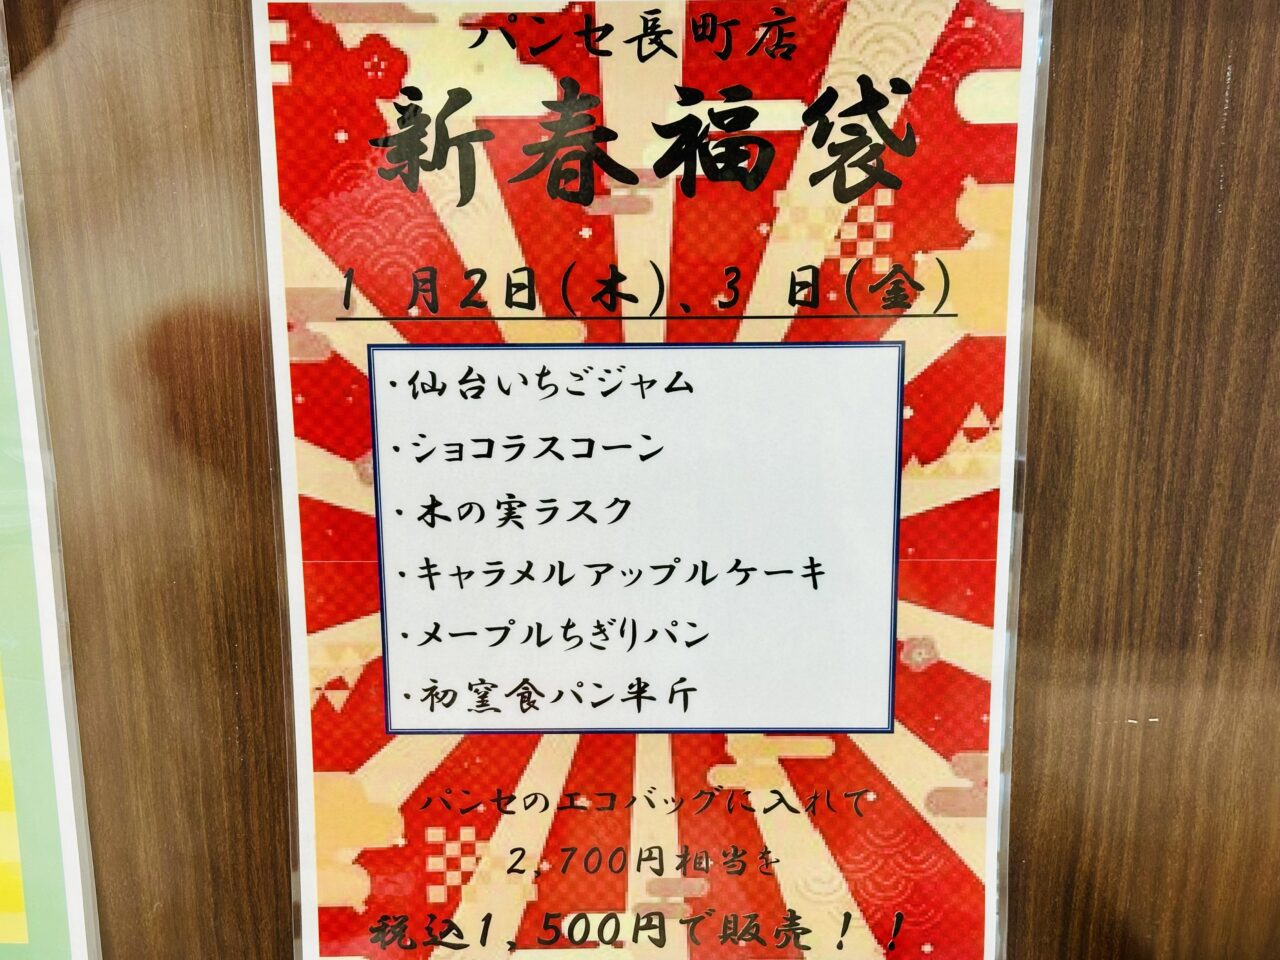 パンセ長町店
新春福袋
1月2日(木)、3日(金)
・仙台いちごジャム
・ショコラスコーン
・木の実ラスク
・キャラメルアップルケーキ
・メープルちぎりパン
・初窯食パン半斤
パンセのエコバッグに入れて
2,700円相当を
税込1,500円で販売！！